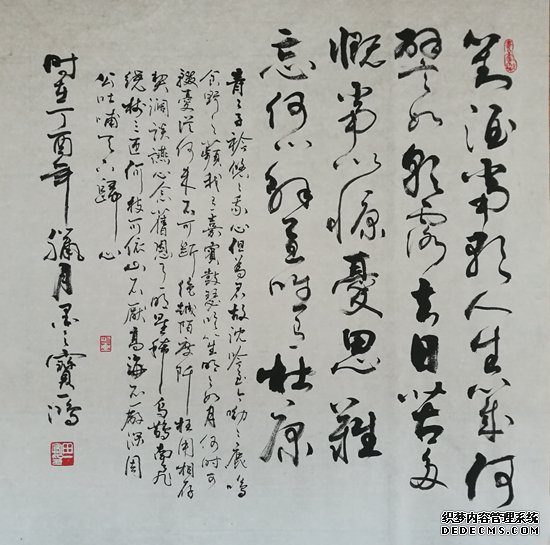 對酒當歌人生幾何
譬如朝露去日苦多
慨當以慷憂思難
忘何以解憂唯有杜康
青々子衿悠々我心但為君故沈吟至今呦々鹿鳴
食野之蘋我有嘉賓鼓瑟吹笙明々如月何時可
掇憂從何來不可斷絕越陌度阡枉用相存
契闊談讌心念舊恩月明星稀烏鵲南飛
繞樹三匝何枝可依山不厭高海不厭深周
公吐哺天下歸心
时在丁酉年臘月
织梦内容管理系统
DEDECMS.COM